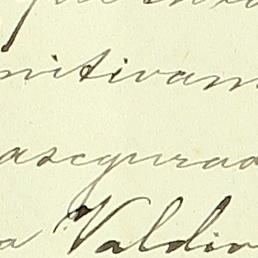 nitivam
asegurad
a Valdiv